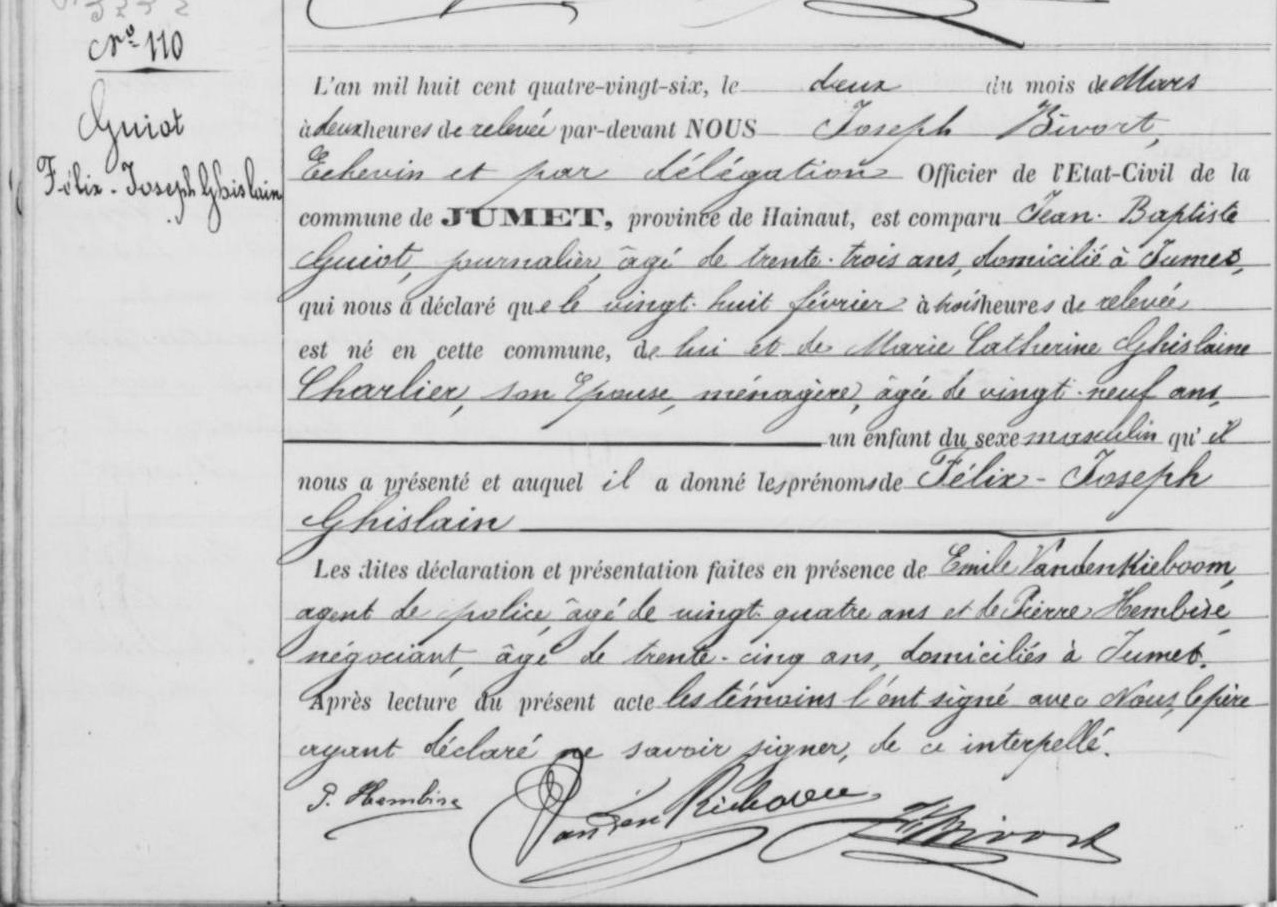 N° 110
Guiot
Félix-Joseph Ghislain
L'an mil huit cent quatre-vingt-six, le deux du mois de Mars
à deux heures de relevée par-devant NOUS Joseph Bivort,
Echevin et par délégation Officier de l'Etat-Civil de la
commune de JUMET, province de Hainaut, est comparu Jean-Baptiste
Guiot, journalier, âgé de trente-trois ans, domicilié à Jumet,
qui nous a déclaré que le vingt-huit février à trois heures de relevée
est né en cette commune, de lui et de Marie Catherine Ghislaine
Charlier, son Epouse, ménagère, âgée de vingt-neuf ans,
un enfant du sexe masculin qu'il
nous a présenté et auquel il a donné les prénoms de Félix-Joseph
Ghislain
Les dites déclaration et présentation faites en présence de Emile Vandenkieboom,
agent de police, âgé de vingt-quatre ans et de Pierre Hembise,
négociant, âgé de trente-cinq ans, domiciliés à Jumet.
Après lecture du présent acte les témoins l'ont signé avec Nous, le père
ayant déclaré ne savoir signer, de ce interpellé.
P. Hembise Vandenkieboom J. Bivort